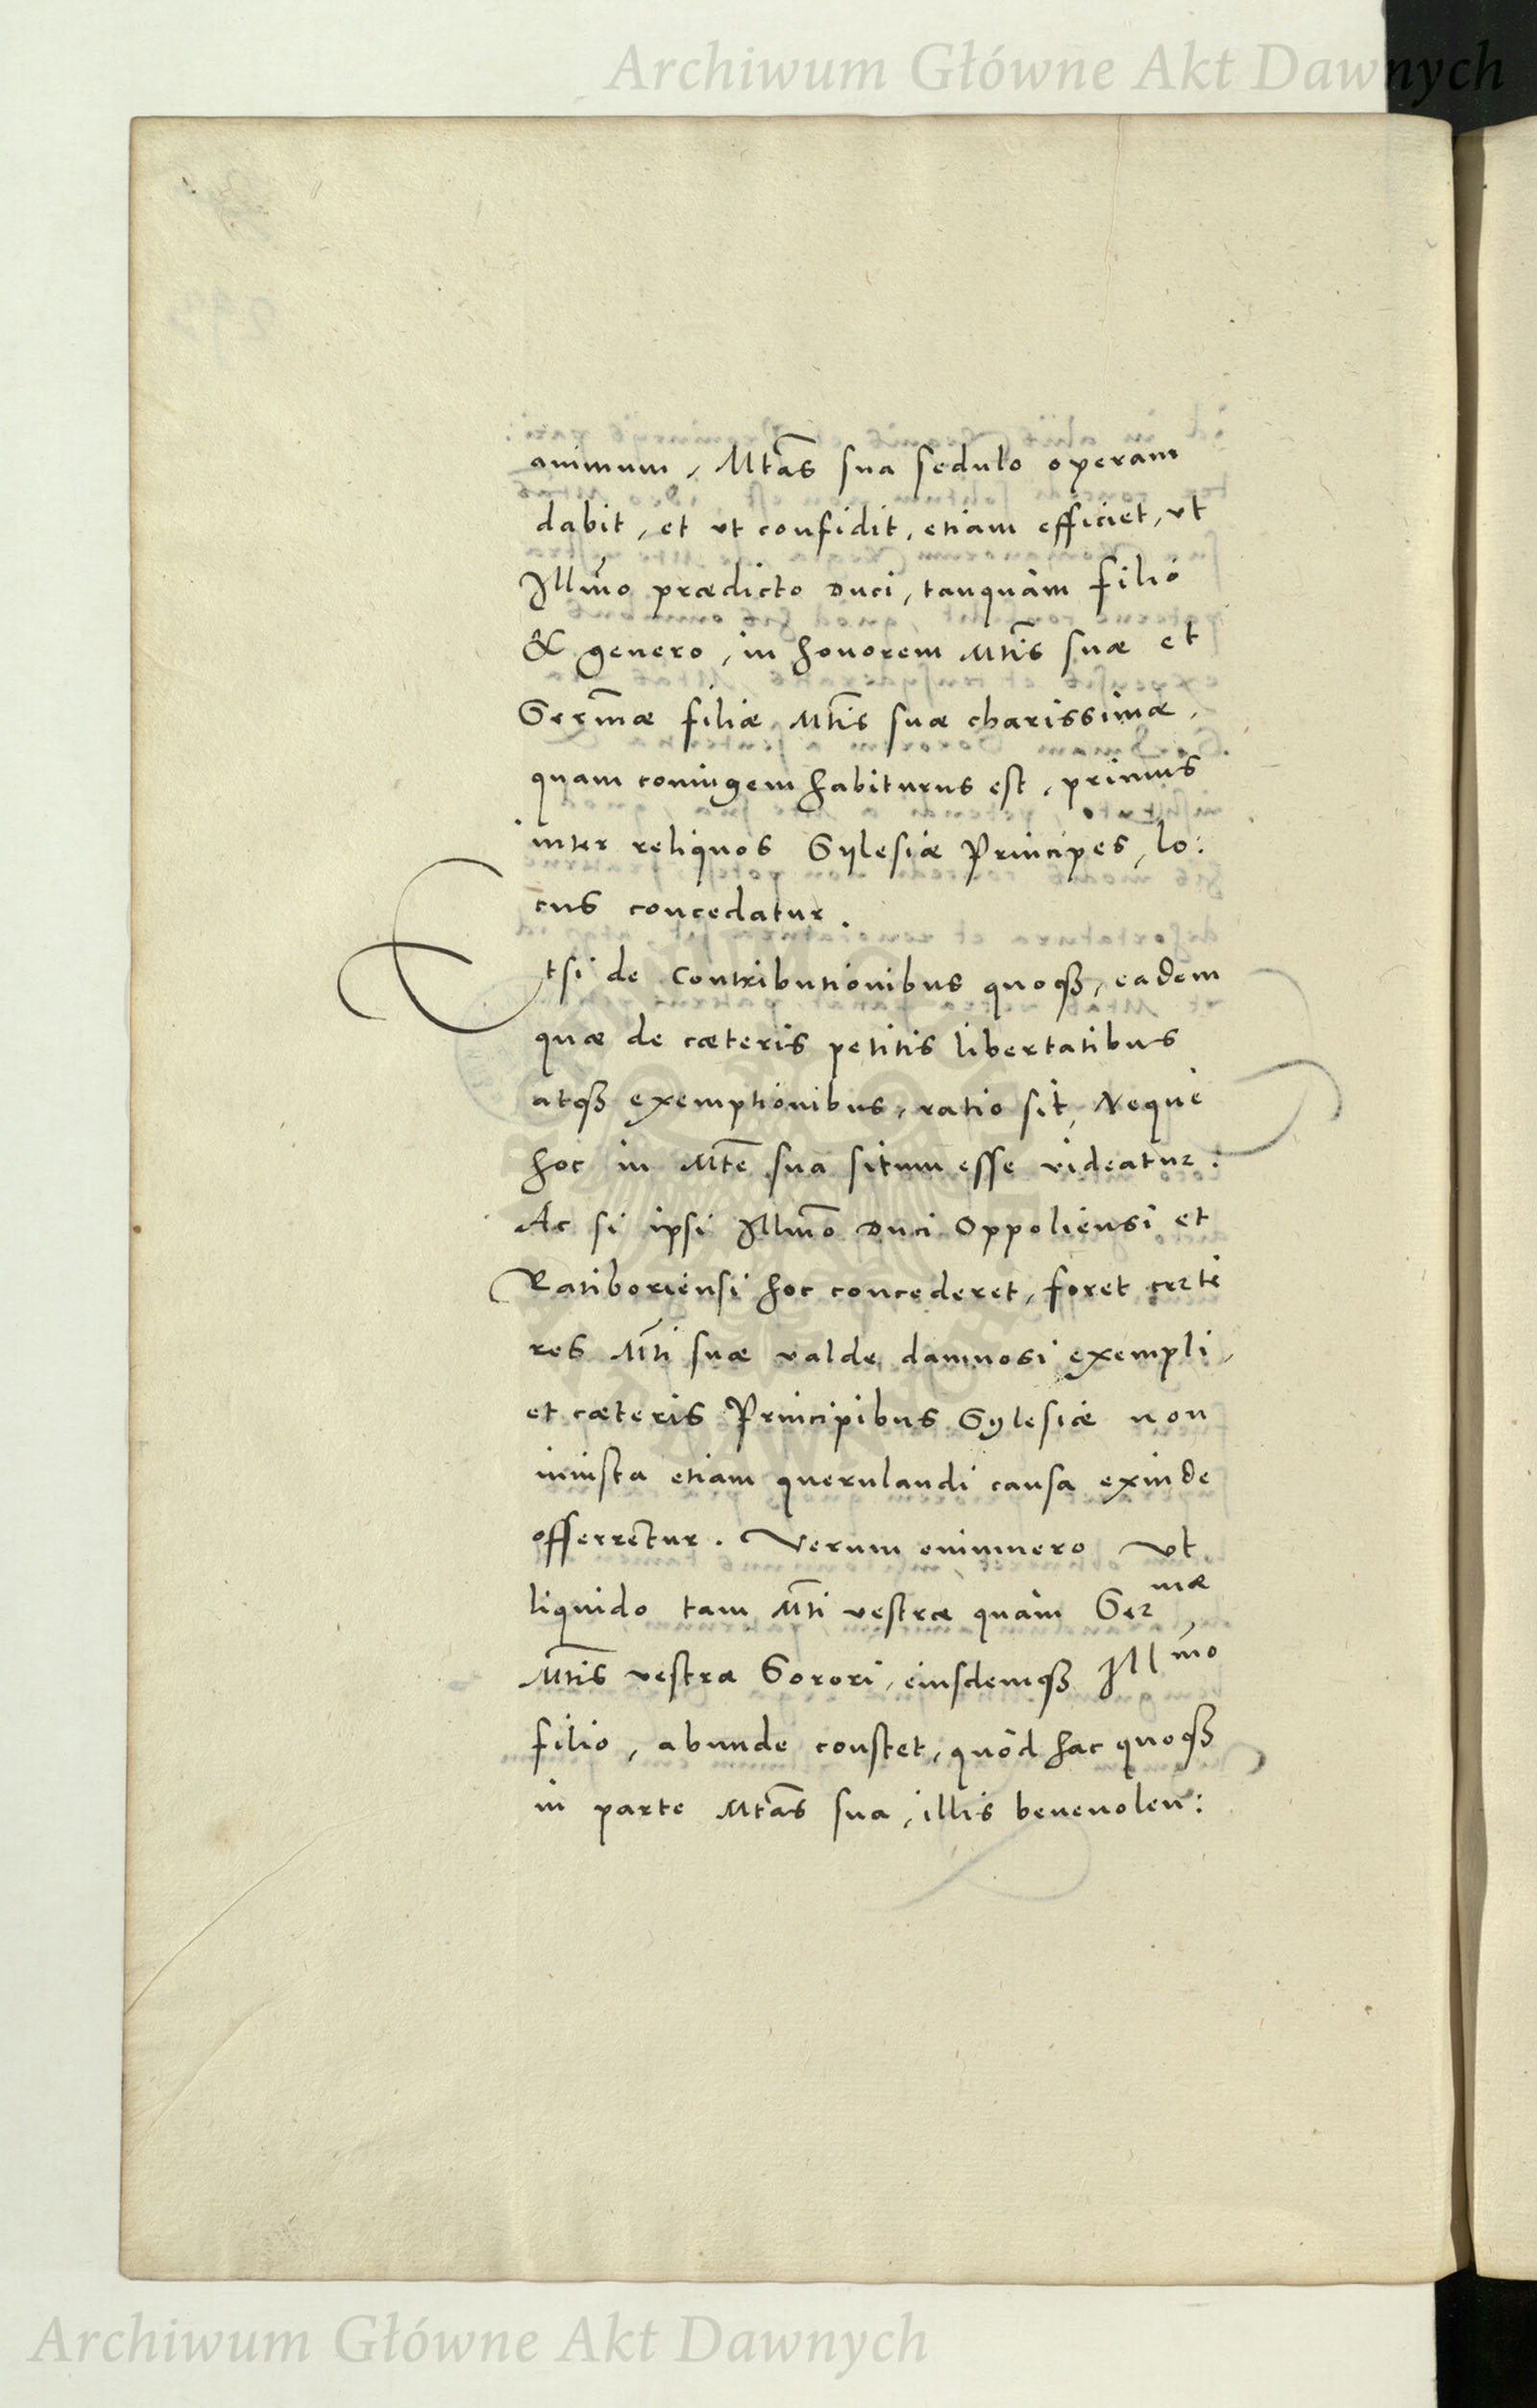 Archiwum Główne Akt Dawnych
animum, Mtas sua sedulo operam
dabit, et ut confidit, etiam efficiet, ut
Illmo prædicto Duci, tanquàm filio
& genero, in honorem Mtis suæ et
Sermæ filiæ Mtis suæ charissimæ,
quam coniugem habiturus est, primus
inter reliquos Sylesiæ Principes, lo:
cus concedatur.
Etsi de Contributionibus quoqꝫ, eadem
quæ de cæteris petitis libertatibus
atqꝫ exemptionibus, ratio sit, Neque
hoc in Mte sua situm esse videatur:
Ac si ipsi Illmo Duci Oppoliensi et
Ratiboriensi hoc concederet, foret certè
res Mti suæ valde damnosi exempli,
et cæteris Principibus Sylesiæ non
iniusta etiam querulandi causa exinde
offerretur. Verum enimuero ut
liquido tam Mti vestræ quàm Sermæ,
Mtis vestræ Sorori, eiusdemqꝫ Illmo
filio, abunde constet, quòd hac quoqꝫ
in parte Mtas sua, illis beneuolen:
Archiwum Główne Akt Dawnych